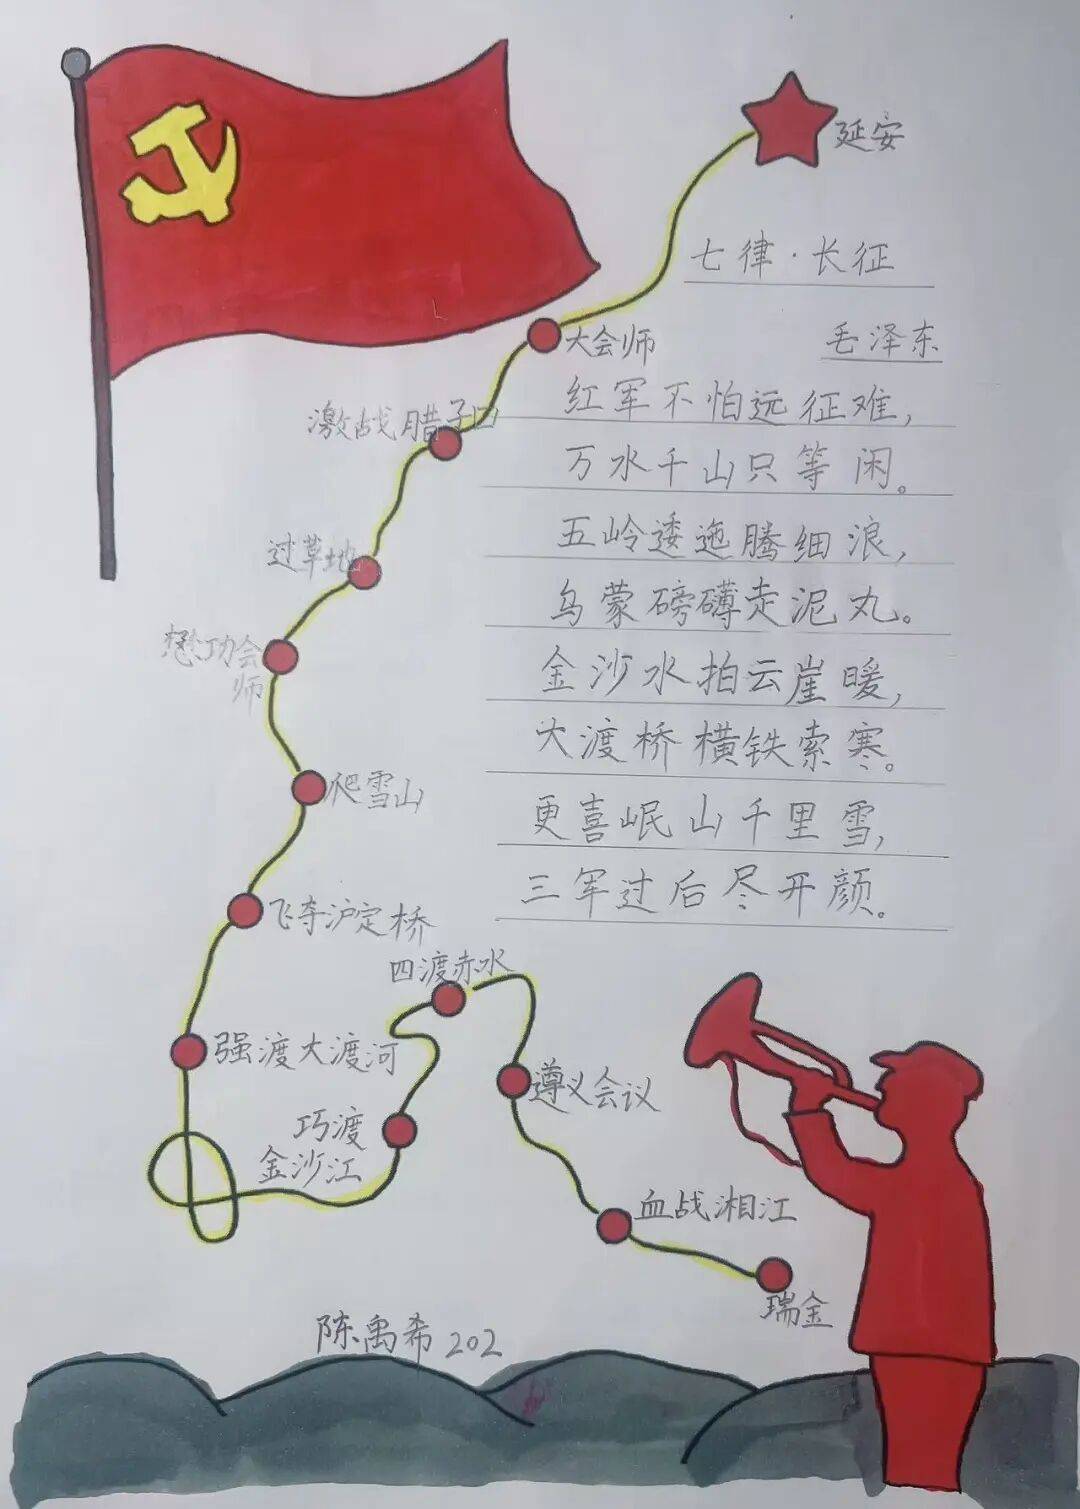 延安
七律·长征
毛泽东
红军不怕远征难，
万水千山只等闲。
五岭逶迤腾细浪，
乌蒙磅礴走泥丸。
金沙水拍云崖暖，
大渡桥横铁索寒。
更喜岷山千里雪，
三军过后尽开颜。
大会师
激战腊子口
过草地
懋功会
师
爬雪山
飞夺沪定桥
强渡大渡河
巧渡
金沙江
四渡赤水
遵义会议
血战湘江
瑞金
陈禹希202